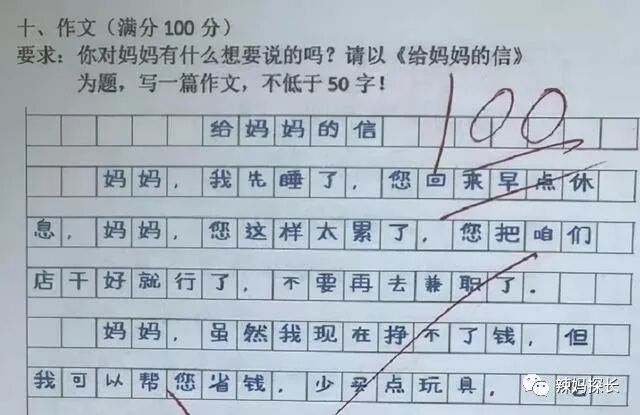 十、作文（满分 100 分）
要求：你对妈妈有什么想要说的吗？请以《给妈妈的信》
为题，写一篇作文，不低于 50 字！
100
给妈妈的信
妈妈，我先睡了，您回来早点休
息，妈妈，您这样太累了，您把咱们
店干好就行了，不要再去兼职了.
妈妈，虽然我现在挣不了钱，但
我可以帮您省钱，少买点玩具，
辣妈探长